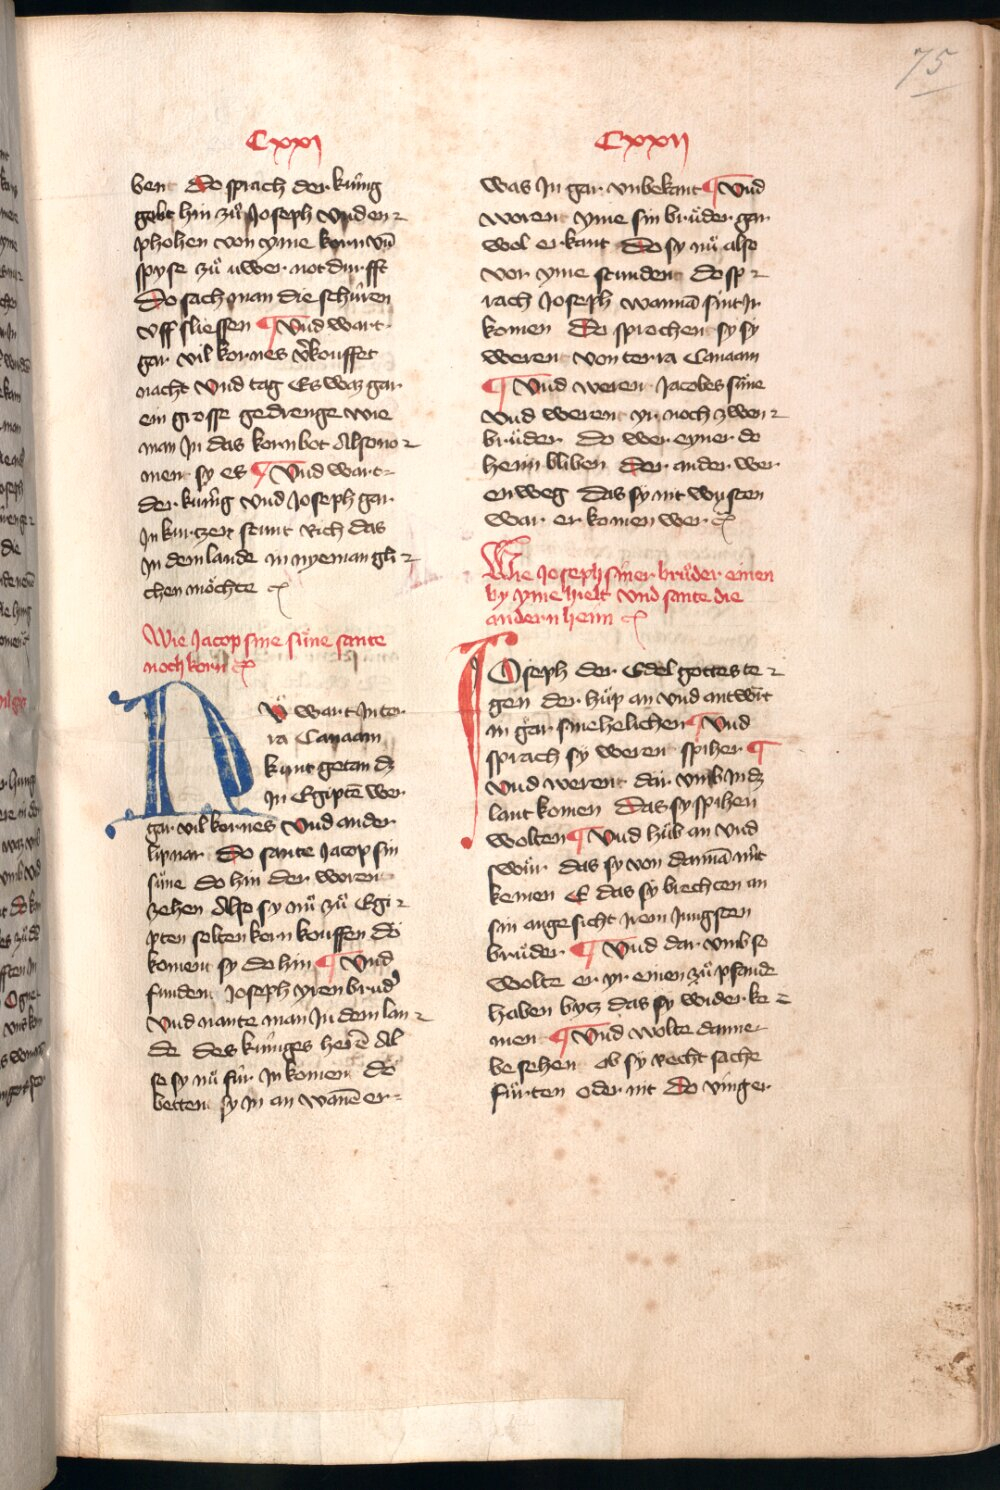 75
Cxxj
bent Do sprach der kúnig
gebt hin zů Joseph vnd en-
phohen von yme korn vn̄
spyse zů uwer notdurfft
Do sach man die schúren
vff sliessen ¶ Vnd wart
gar vil kornes v̓kouffet
nacht vnd tag Es waz gar
ein grosse gedrenge wie
man Jn das korn bot Also no-
men sy es ¶ Vnd wart
der kúnig vnd Joseph gar
Jn kurtzer stunt Rich das
Jn dem lande in nyeman gli-
chen möchte
Wie Jacop sine súne sante
noch korn
Nů wart Jn ter
ra Canaam
kunt getan dz
Jn Egipten̄ wer
gar vil kornes vnd ander
lipnar Do sante Jacop sin
súne do hin der worent
zehen Also sy nů zů Egi-
pten solten korn kouffen do
koment sy do hin ¶ Vnd
funden Joseph yren brud̓
Vnd nante man Jn dem lan-
de des kúniges herē Al
se sy nů fúr Jn koment do
betten sy in an wanē er-
Cxxij
was Jn gar vnbekant ¶ Vnd
worent yme sin brůder gar
wol erkant Do sy nů also
vor yme stundent do sp-
rach Joseph wannā sint Jr
komen Do sprochen sy sy
werent von terra Canaam
¶ Vnd weren Jacobes súne
Vnd werent yr noch zwen-
brůder do wer eyner do
heim bliben der ander wer
enweg das sy nit wusten
war er komen wer
Wie Joseph siner brůder einen
by yme hielt vnd sante die
andern heim
Joseph der Edel gottes te-
gen der hůp an vnd antwúrt
in gar smehelichen ¶ Vnd
sprach sy werent spiher ¶
Vnd werent dar vmb Jn dz
lant komen Das sy spihen
wolten ¶ Vnd hůb an vnd
swůr das sy von dannā nút
kemen E das sy brechten an
sin angesicht Jrem Jungsten
brůder ¶ Vnd dar vmb so
wolte er yr einen zů pfande
haben bytz das sy wider ke-
men ¶ Vnd wolte danne
besehen ob sy recht sache
fůrten oder nit Do vinger